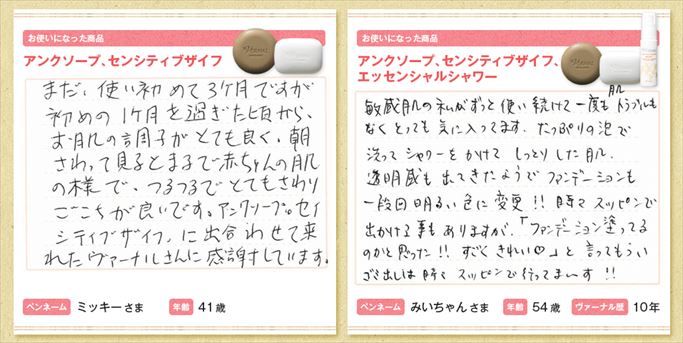 お使いになった商品
アンクソープ、センシティブザイフ
まだ、使い初めて3ケ月ですが
初めの1ケ月を過ぎた頃から、
お肌の調子がとても良く、朝
さわって見るとまるで赤ちゃんの肌
の様で、つるつるでとてもさわり
ごこちが良いです。アンクソープ。セイ
シティブザイフ、に出合わせて来
れたヴァーナルさんに感謝しています。
ペンネーム ミッキーさま 年齢 41歳
お使いになった商品
アンクソープ、センシティブザイフ、
エッセンシャルシャワー
敏感肌の私がずっと使い続けて一度も肌トラブルも
なくとっても気に入ってます。たっぷりの泡で
洗ってシャワーをかけてしっとりした肌。
透明感も出てきたようでファンデーションも
一段回明るい色に変更!!時々スッピンで
出かける事もありますが、「ファンデーション塗ってる
のかと思った!!すごくきれい♡」と言ってもらい
ご近所は時々スッピンで行ってまーす!!
ペンネーム みいちゃんさま 年齢 54歳 ヴァーナル歴 10年